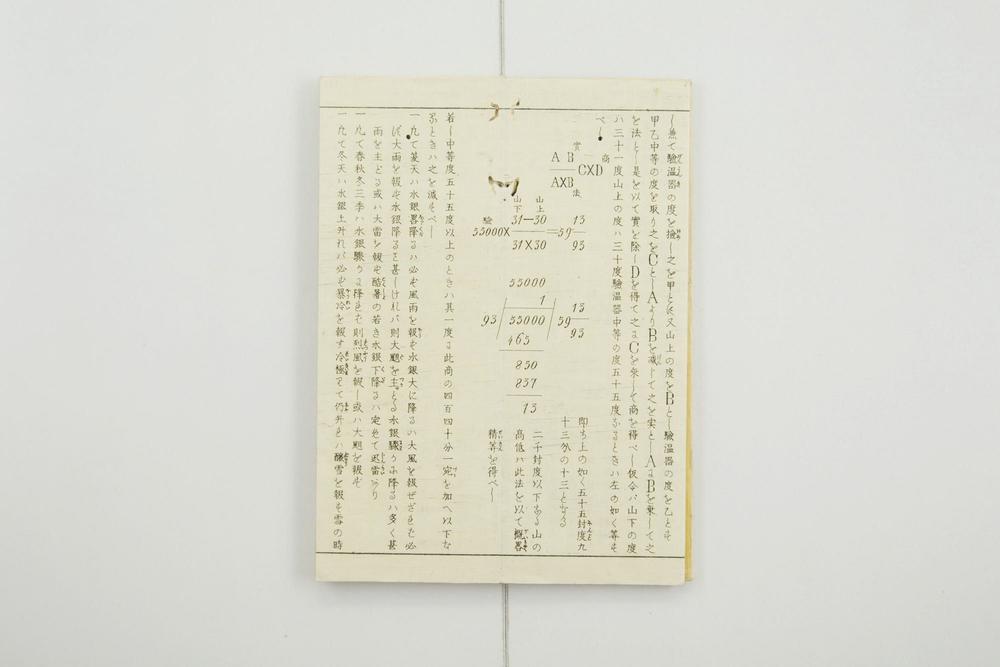 し無て驗温器の度を撿し之を甲とㇲ又山上の度をBとし驗温器の度を乙とㇲ
甲乙中等の度を取り之をCとしAよりBを減して之を実としAにBを乗して之
を法とし是を以て實を除しDを得て之にCを乗して商を得べし仮令バ山下の度
ハ三十一度山上の度ハ三十度驗温器中等の度五十五度なるときハ左の如く算す
べし
實
A B
商
C×D
A×B
法
山下 山上
驗
55000× 31—30 / 31×30 =59 13/93
55000
1
93 55000 59 13/93
465
850
837
13
即ち上の如く五十五封度九
十三分の十三となる
二千封度以下なる山の
高低ハ此法を以て概畧
精算を得べし
若し中等度五十五度以上のときハ其一度に此商の四百四十分一宛を加へ以下な
るときハ之を減すべし
一凡て夏天ハ水銀畧降るハ必ず風雨を報ず水銀大に降るハ大風を報ぜざれども必
ず大雨を報ず水銀降る甚しけれバ則大颶を主どる水銀驟に降るハ多く甚
雨を主どる或ハ大雷を報ず酷暑の若き水銀下降るハ定めて迅雷あり
一凡て春秋冬三季ハ水銀驟に降れバ則烈風を報し或ハ大颶を報ず
一凡て冬天ハ水銀上升れバ必ず暴冷を報す冷極て仍升れハ釀雪を報ず雪の時